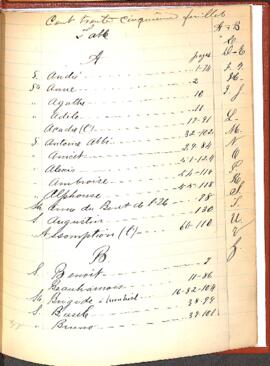 Cent trente cinquième feuillet
Table
A
pages
S. André 1-74
Ste Anne 2
" Agathe 10
" Adèle 11
Acadie (l') 17-91
32-102
S. Antoine Abbé 39-84
" Anicet 51-124
" Alexis 54-114
" Ambroise 55-118
" Alphonse 78
Ste Anne du Bout de l'Ile 130
S. Augustin
Assomption (l') 60-110
B
S. Benoit 2
Beauharnois 11-86
Ste Brigide 16-32-104
S. Basile 38-99
" Bruno 39-101
A-B
C
D-E
F. G
H
I. J
L
M
N
O
P
R
S
T
U
V